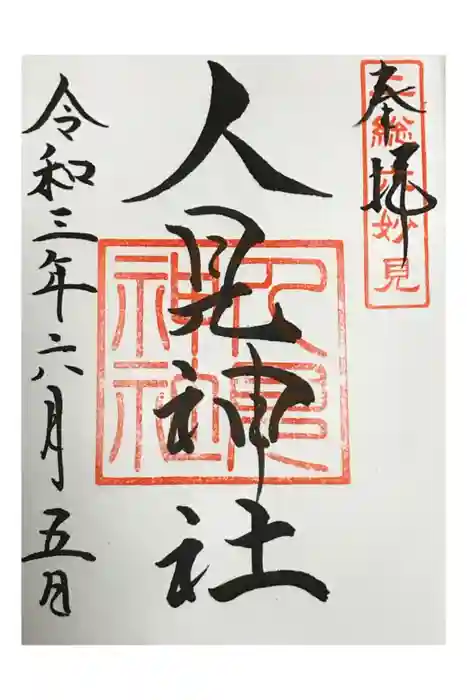 奉拝
総
妙見
人見神社
人見神社
令和三年六月五日